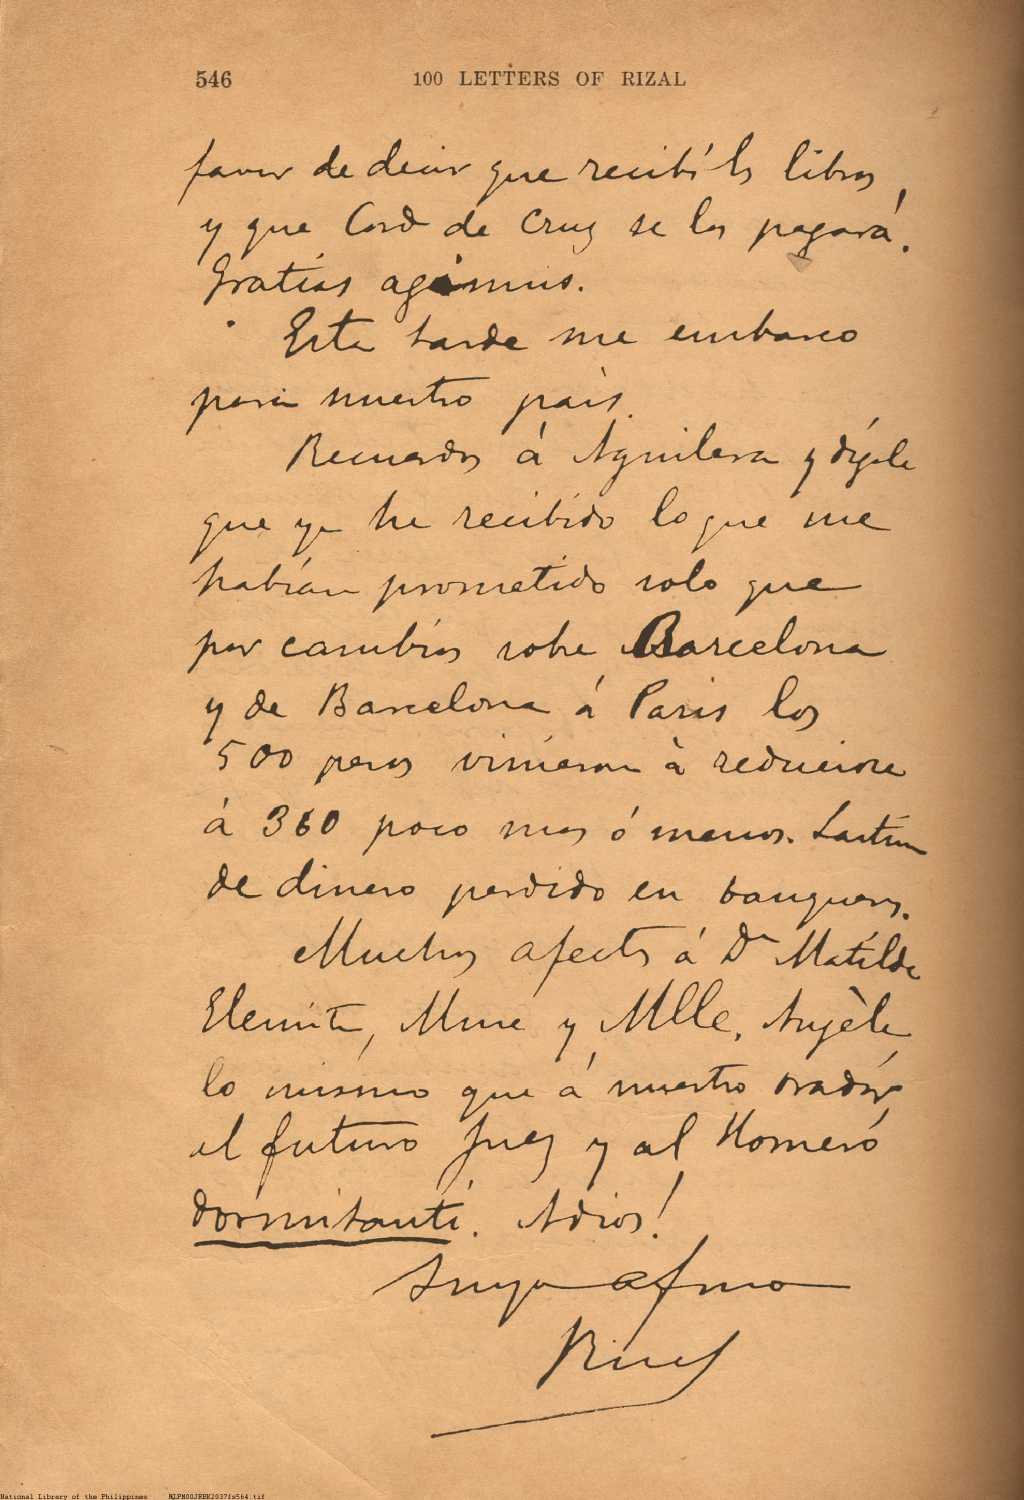 546 100 LETTERS OF RIZAL
favor de decir que recibí los libros,
y que Cord de Cruz se los pagará.
Gratias agimus.
Esta tarde me embarco
para nuestro país.
Recuerdos á Aguilera y dígale
que ya he recibido lo que me
habían prometido solo que
por cambios sobre Barcelona
y de Barcelona á Paris los
500 pesos vinieron à reducirse
á 360 poco mas ó menos. Lastima
de dinero perdido en banqueros.
Muchos afectos á Dª Matilde
Elemita, Mme y Mlle. Angèle
lo mismo que á nuestro orador
el futuro Juez y al Homeró
dormitanti. Adios!
Suyo afmo
Rizal
National Library of the Philippines NLPN00JRBK2037fs564.tif